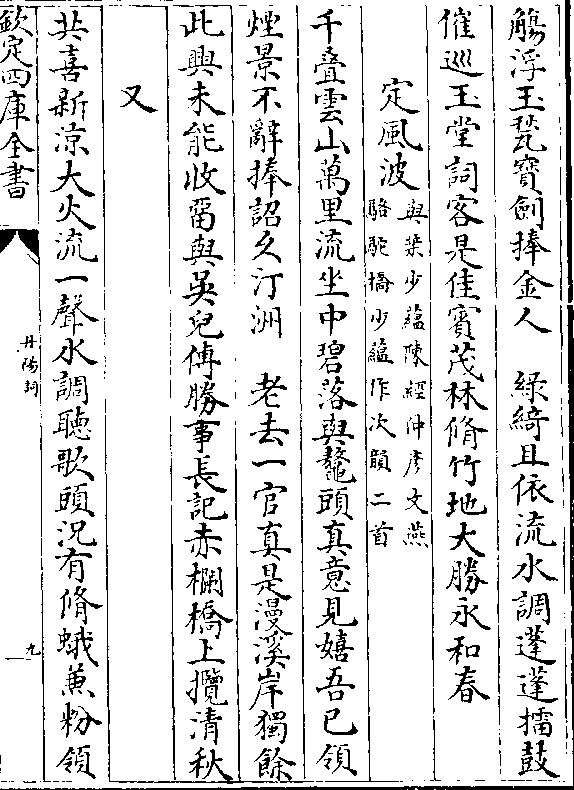 觴浮玉甃寳劍捧金人　緑綺且依流水調蓬蓬擂鼓
催巡玉堂詞客是佳賓茂林脩竹地大勝永和春
定風波
與葉少藴陳經仲彦文燕
駱駝橋少藴作次韻二首
千疊雲山萬里流坐中碧落與鼇頭真意見嬉吾已領
煙景不辭捧詔久汀洲　老去一官真是漫溪岸獨餘
此興未能收留與吳兒傳勝事長記赤欄橋上攬清秋
又
共喜新涼大火流一聲水調聽歌頭況有脩蛾兼粉領
欽定四庫全書
丹陽詞
九